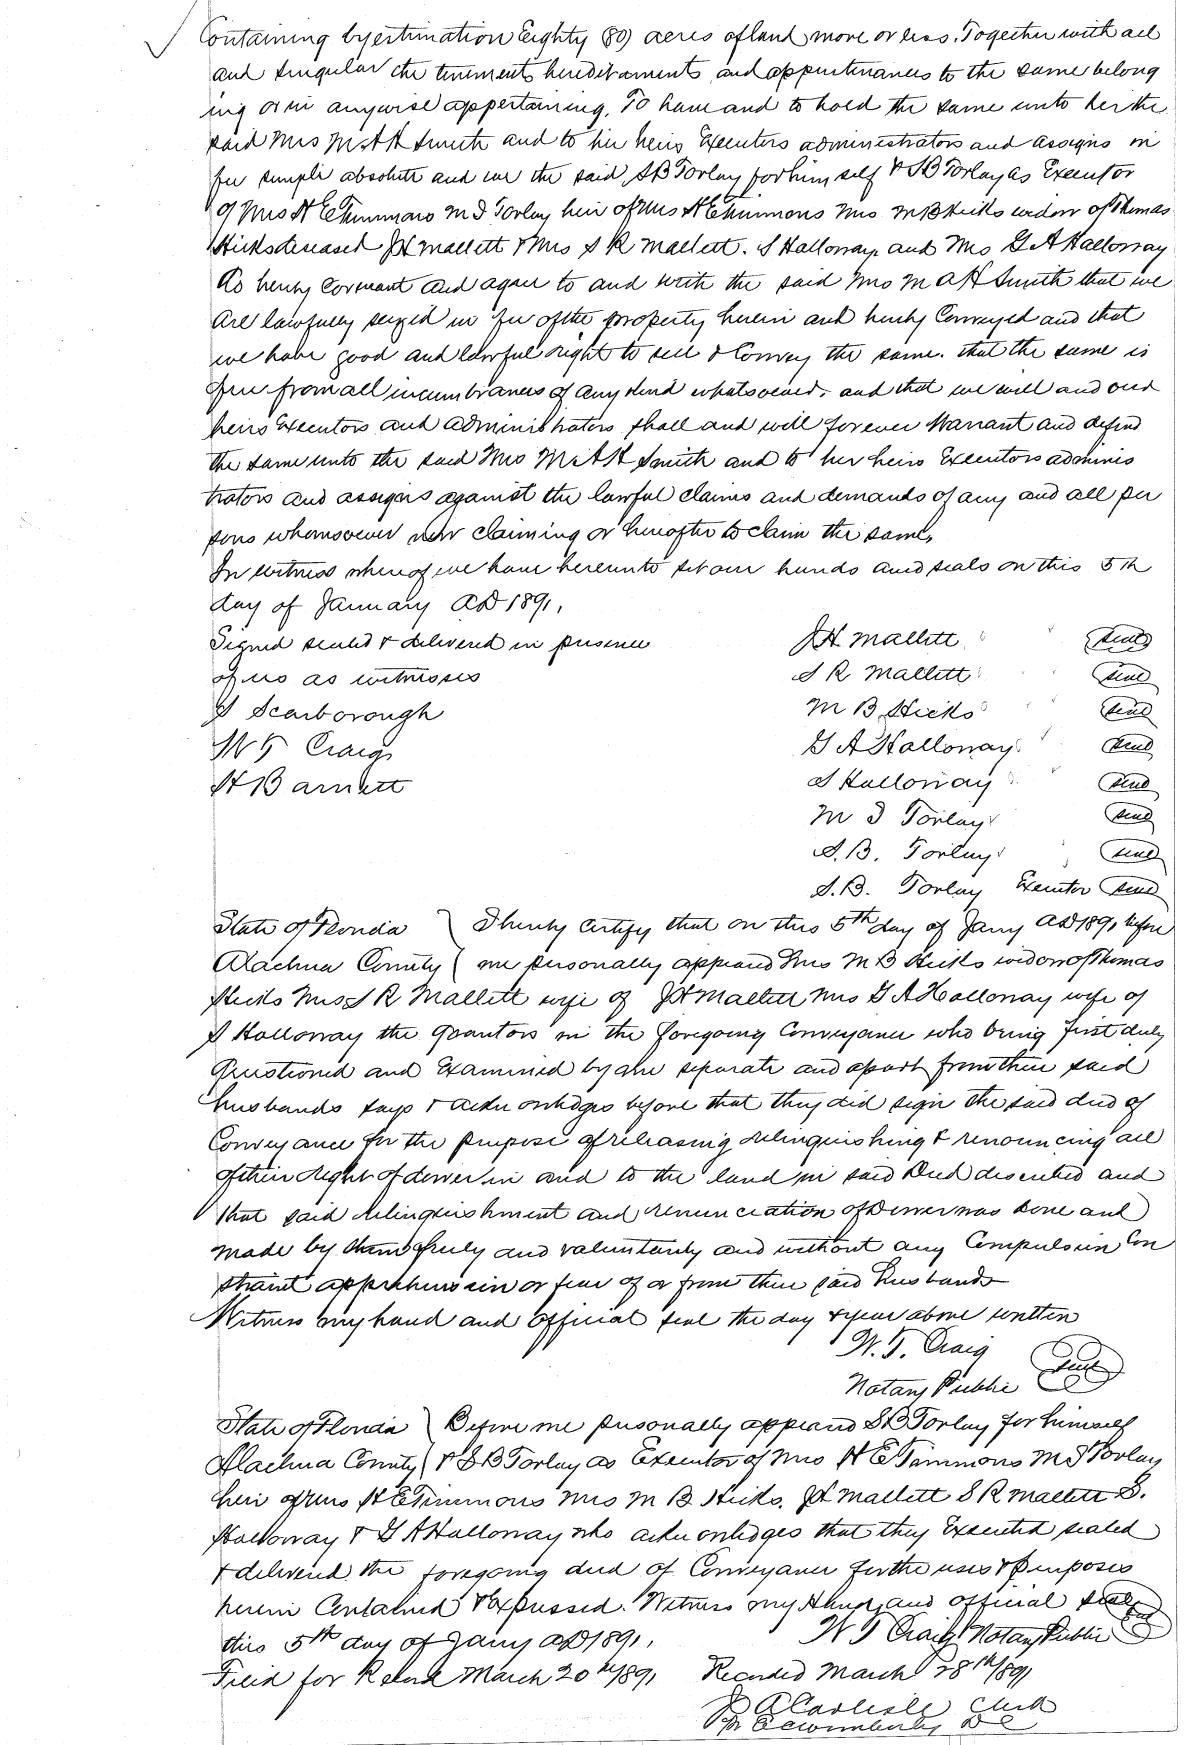 Containing by estimation Eighty (80) acres of land more or less. Together with all
and singular the tenements hereditaments and appurtenances to the same belong
ing or in anywise appertaining. To have and to hold the same unto her the
said Mrs M A H Smith and to her heirs Executors administrators and assigns in
fee simple absolute and we the said S B Torlay for him self & S B Torlay as Executor
of Mrs H E Timmons M I Torlay heir of Mrs H E Timmons Mrs. M B Hicks widow of Thomas
Hicks deceased J H Mallett & Mrs S R Mallett. S Halloway and Mrs G A Halloway
do hereby covenant and agree to and with the said Mrs M A H Smith that we
are lawfully seized in fee of the property herein and hereby Conveyed and that
we have good and lawful right to sell & Convey the same. that the same is
free from all incumbrances of any kind whatsoever, and that we will and our
heirs Executors and administrators shall and will forever Warrant and defend
the same unto the said Mrs M A H Smith and to her heirs Executors adminis
trators and assigns against the lawful claims and demands of any and all per
sons whomsoever now claiming or hereafter to claim the same,
In witness whereof we have hereunto set our hands and seals on this 5th
day of January AD 1891,
Signed sealed & delivered in presence
of us as witnesses
J H Mallett seal
S R Mallett seal
S Scarborough
M B Hicks seal
W T Craig
G A Halloway seal
H Barnett
S Halloway seal
M I Torlay seal
S. B. Torlay seal
S. B. Torlay Executor seal
State of Florida } I hereby certify that on this 5th day of Jany AD 1891 before
Alachua County { me personally appeared Mrs M B Hicks widow of Thomas
Hicks Mrs S R Mallett wife of J H Mallett Mrs G A Halloway wife of
S Halloway the Grantors in the foregoing Conveyance who being first duly
Questioned and Examined by me separate and apart from their said
husbands says & acknowledges before that they did sign the said deed of
Conveyance for the purpose of releasing relinquishing & renouncing all
of their right of dower in and to the land in said Deed described and
that said relinquishment and renunciation of Dower was done and
made by them freely and voluntarily and without any Compulsion Con
straint apprehension or fear of or from their said husbands
Witness my hand and official seal the day & year above written
W. T. Craig
Notary Public seal
State of Florida } Before me personally appeared S B Torlay for himself
Alachua County { & S B Torlay as Executor of Mrs H E Timmons M I Torlay
heir of Mrs H E Timmons Mrs M B Hicks. J H Mallett S R Mallett S.
Halloway & G A Halloway who acknowledges that they Executed sealed
& delivered the foregoing deed of Conveyance for the uses & purposes
herein Contained & Expressed. Witness my Hand and official seal
this 5th day of Jany AD 1891, W T Craig Notary Public seal
Filed for Record March 20th 1891 Recorded March 28th 1891
J A Carlisle Clerk
DC